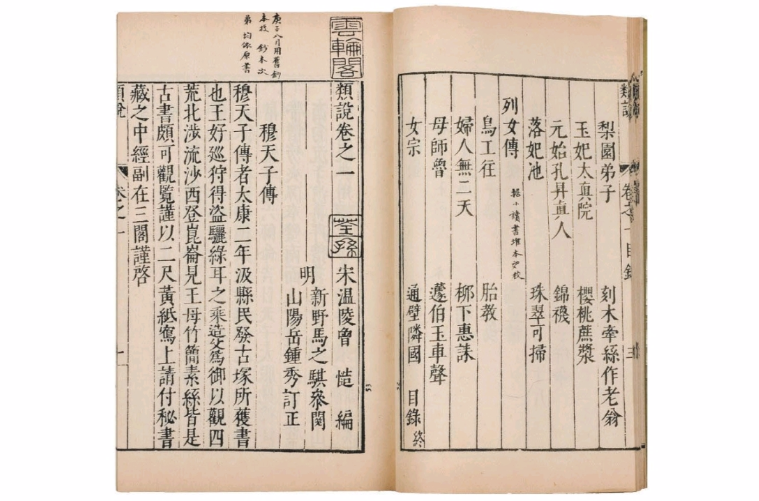 類說 卷之一目錄 三
梨園弟子 刻木牽絲作老翁
玉妃太真院 櫻桃蔗漿
元始孔昇真人 錦襪
落妃池 珠翠可掃
列女傳
鳥工往 胎教
婦人無二天 柳下惠誄
母師魯 蘧伯玉車聲
女宗 通壁隣國 目錄終
雲輪閣
庚子八月用舊鈔
本校鈔本次
弟均依原書
類說卷之一
荃孫
宋溫陵曾慥編
明新野馬之騏參閱
山陽岳鍾秀訂正
穆天子傳
穆天子傳者太康二年汲縣民發古塚所獲書
也王好巡狩得盜驪綠耳之乘造父為御以觀四
荒北涉流沙西登崑崙見王母竹簡素絲皆是
古書頗可觀覽謹以二尺黃紙寫上請付秘書
藏之中經副在三閣謹啓
類說 卷之一 一